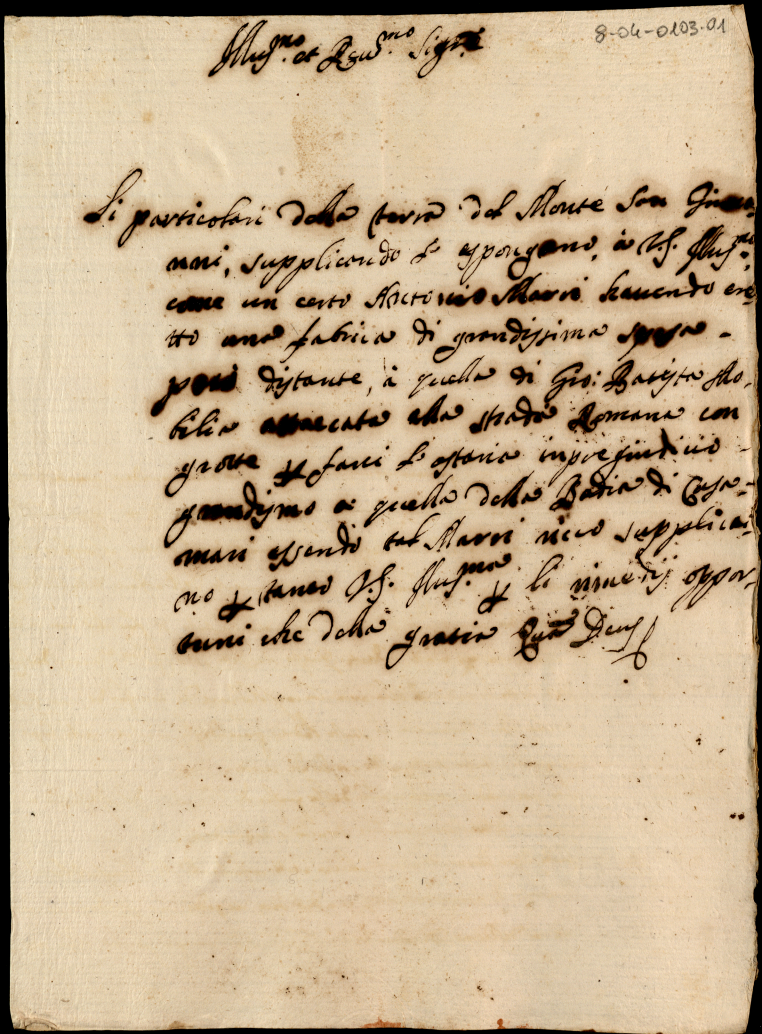 8-04-0103-01
Illus.mo et Reu.mo Sig.re
Li particolari della terra del Monte San Gioua-
nni, supplicando l'espongono, à V.S. Illus.ma
come un certo Antonio Marri hauendo ere-
tto una fabrica di grandissima spesa
poco distante, à quella di Gio: Batista Mo-
bilia attaccata alla strada Romana con
grotte p farci l'ostaria in pregiuditio
grandismo a quella della Badia di Casa-
mari essendo tal Marri ricco supplica-
no p tanto V.S. Illus.ma p li rimedij oppor-
tuni che della gratia Quā Deus